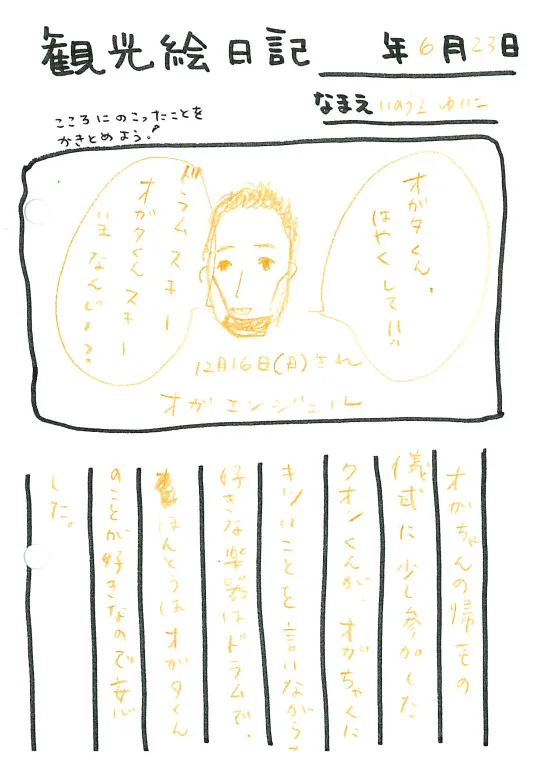 観光絵日記
年6月23日
なまえ いのうえ ゆいこ
こころにのこったことを
かきとめよう!
オガタくん、
はやくして!!!
ドラム スキー
オガタくん スキー
なんじー?
12月16日(日)
オガエンジェル
オガちゃんの帰宅の
儀式に少し参加した
クオンくんが、オガちゃんに
キツいことを言いながら
好きな楽器はドラムで、
ほんとうはオガタくん
のことが好きなので安心
した。